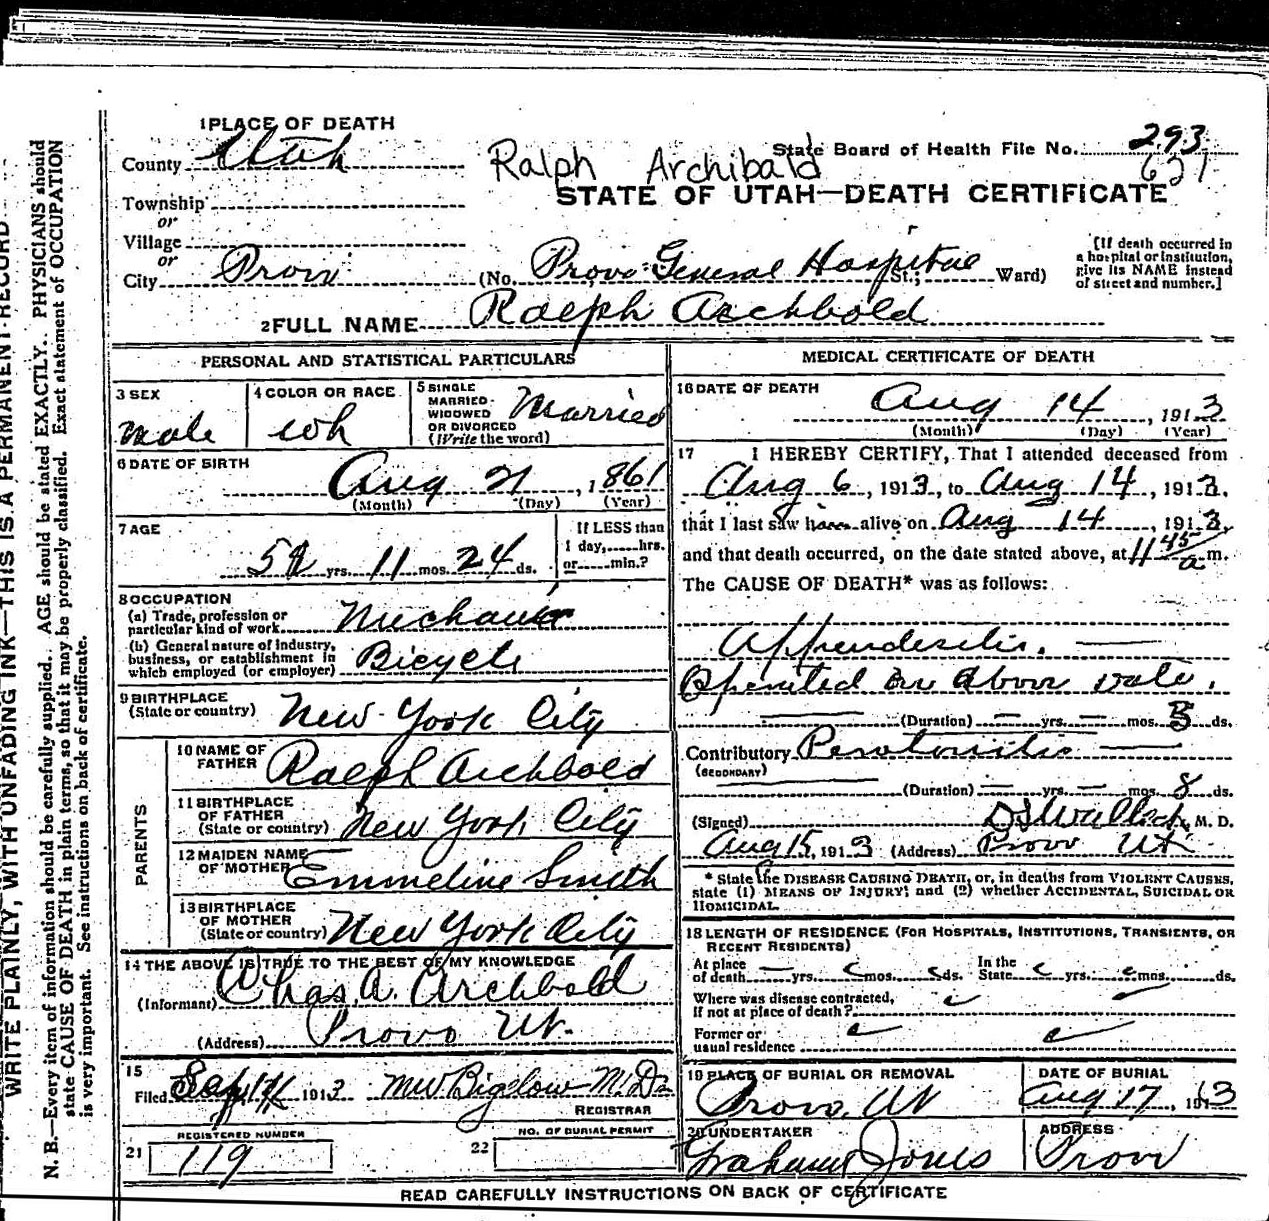 WRITE PLAINLY, WITH UNFADING INK—THIS IS A PERMANENT RECORD
N. B.—Every item of information should be carefully supplied. AGE should be stated EXACTLY. PHYSICIANS should
state CAUSE OF DEATH in plain terms, so that it may be properly classified. Exact statement of OCCUPATION
is very important. See instructions on back of certificate.
1 PLACE OF DEATH
County Utah
Township
or
Village
or
City Provo
Ralph Archibald
State Board of Health File No. 293
621
STATE OF UTAH—DEATH CERTIFICATE
(No. Provo General Hospital St.; Ward)
[If death occurred in
a hospital or institution,
give its NAME instead
of street and number.]
2 FULL NAME Ralph Archbold
PERSONAL AND STATISTICAL PARTICULARS
3 SEX
male
4 COLOR OR RACE
wh
5 SINGLE
MARRIED
WIDOWED
OR DIVORCED
(Write the word)
Married
6 DATE OF BIRTH
Aug 21, 1861
(Month) (Day) (Year)
7 AGE
yrs. 11 mos. 24 ds.
If LESS than
1 day,......hrs.
or......min.?
8 OCCUPATION
(a) Trade, profession or
particular kind of work Mechanic
(b) General nature of industry,
business, or establishment in
which employed (or employer) Bicycle
9 BIRTHPLACE
(State or country) New York City
PARENTS
10 NAME OF
FATHER Ralph Archbold
11 BIRTHPLACE
OF FATHER
(State or country) New York City
12 MAIDEN NAME
OF MOTHER Emmeline Smith
13 BIRTHPLACE
OF MOTHER
(State or country) New York City
14 THE ABOVE IS TRUE TO THE BEST OF MY KNOWLEDGE
(Informant) Chas. A. Archbold
(Address) Provo Ut.
15
Filed 1913 MW Bigelow M.D.
REGISTRAR
REGISTERED NUMBER
21 119
NO. OF BURIAL PERMIT
22
MEDICAL CERTIFICATE OF DEATH
16 DATE OF DEATH
Aug 14, 1913
(Month) (Day) (Year)
17 I HEREBY CERTIFY, That I attended deceased from
Aug 6, 1913, to Aug 14, 1913.
that I last saw him alive on Aug 14, 1913,
and that death occurred, on the date stated above, at 11 45 a m.
The CAUSE OF DEATH* was as follows:
Appendesitis.
Operated on above date.
(Duration) — yrs. — mos. ds.
Contributory Peretonitis
(SECONDARY)
(Duration) — yrs. — mos. 8 ds.
(Signed) M. D.
Aug 15, 1913 (Address) Provo Ut.
* State the DISEASE CAUSING DEATH, or, in deaths from VIOLENT CAUSES,
state (1) MEANS OF INJURY; and (2) whether ACCIDENTAL, SUICIDAL OR
HOMICIDAL.
18 LENGTH OF RESIDENCE (FOR HOSPITALS, INSTITUTIONS, TRANSIENTS, OR
RECENT RESIDENTS)
At place
of death yrs. mos. ds. In the
State yrs. mos. ds.
Where was disease contracted,
If not at place of death?
Former or
usual residence
19 PLACE OF BURIAL OR REMOVAL
Provo, Ut
DATE OF BURIAL
Aug 17, 1913
20 UNDERTAKER
Graham Jones
ADDRESS
Provo
READ CAREFULLY INSTRUCTIONS ON BACK OF CERTIFICATE